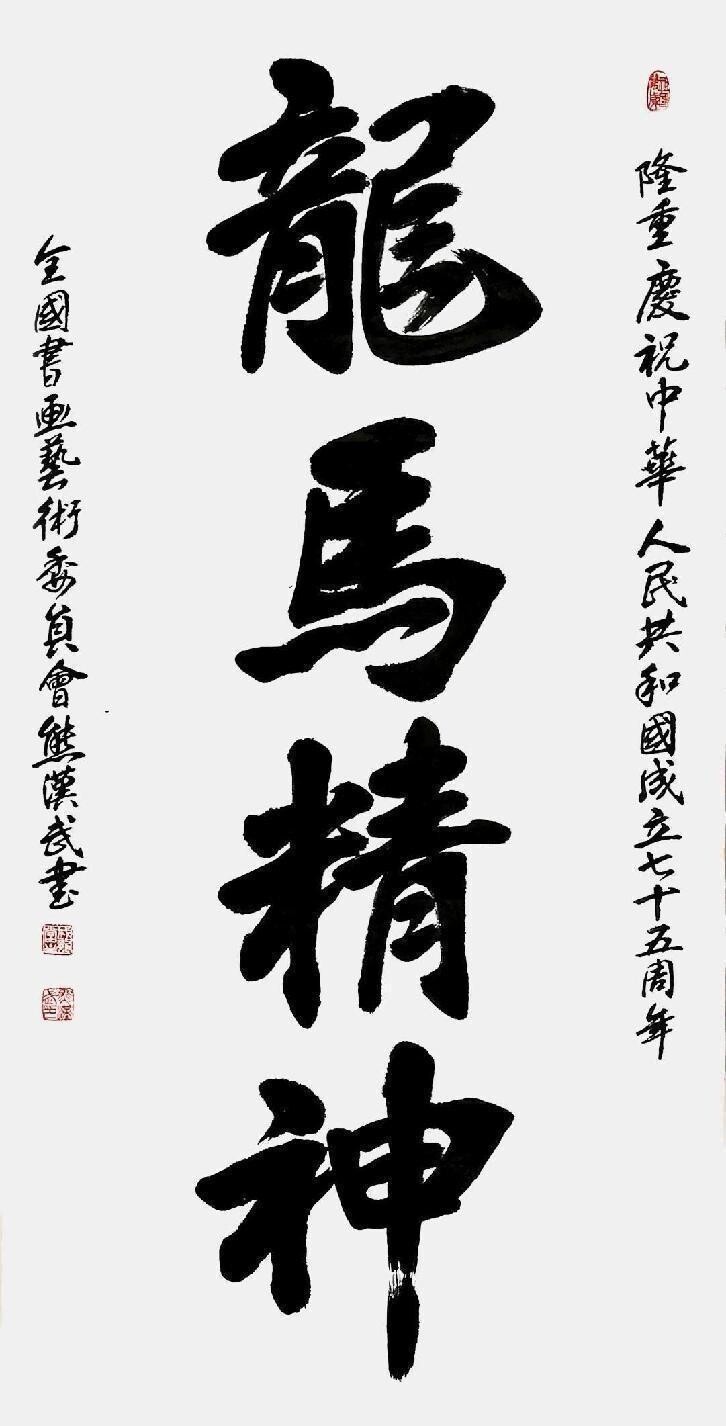 隆重慶祝中華人民共和國成立七十五周年
龍馬精神
全國書画藝術委員會熊漢武書